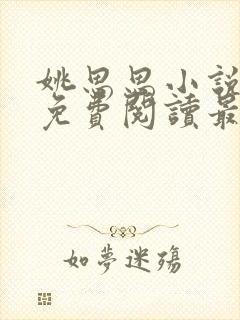 姚思思小說
免費閱讀最
如夢迷殤